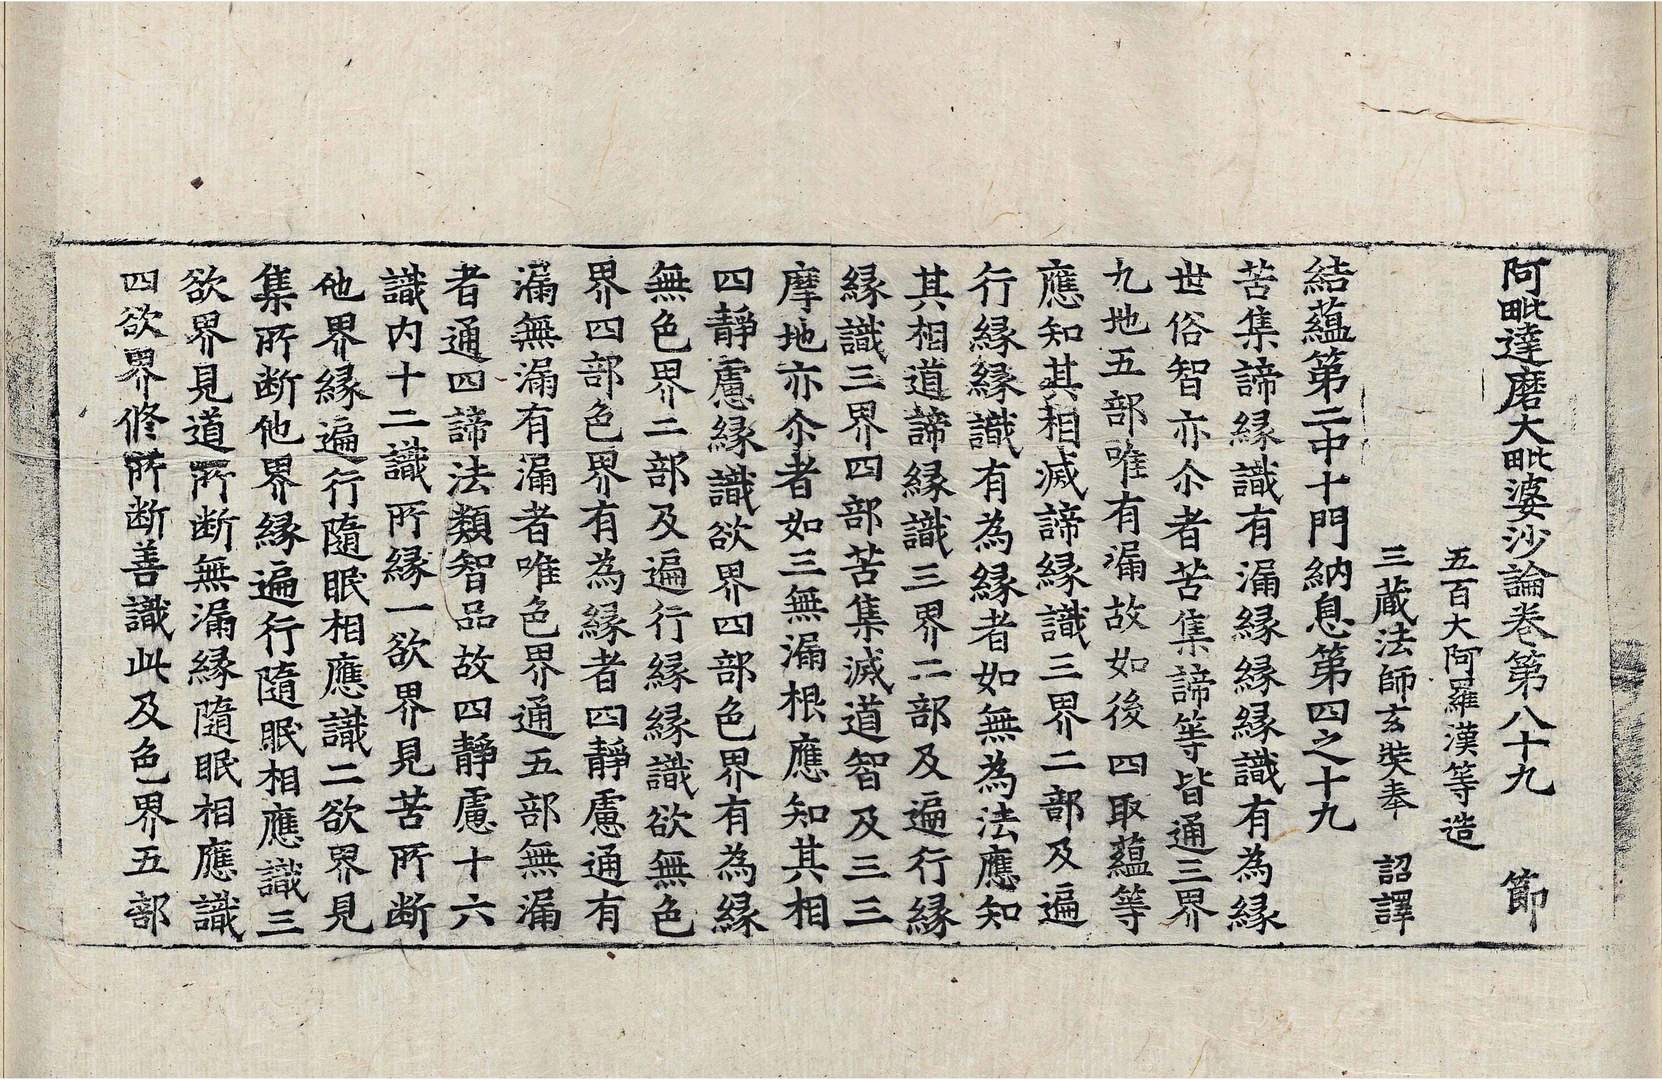 阿毗達磨大毗婆沙論卷第八十九　節
五百大阿羅漢等造
三藏法師玄奘奉　詔譯
結蘊第二中十門納息第四之十九
苦集諦緣識有漏緣緣識有為緣
世俗智亦尒者苦集諦等皆通三界
九地五部唯有漏故如後四取蘊等
應知其相滅諦緣識三界二部及遍
行緣緣識有為緣者如無為法應知
其相道諦緣識三界二部及遍行緣
緣識三界四部苦集滅道智及三三
摩地亦尒者如三無漏根應知其相
四靜慮緣識欲界四部色界有為緣
無色界二部及遍行緣緣識欲無色
界四部色界有為緣者四靜慮通有
漏無漏有漏者唯色界通五部無漏
者通四諦法類智品故四靜慮十六
識內十二識所緣一欲界見苦所斷
他界緣遍行隨眠相應識二欲界見
集所斷他界緣遍行隨眠相應識三
欲界見道所斷無漏緣隨眠相應識
四欲界修所斷善識此及色界五部